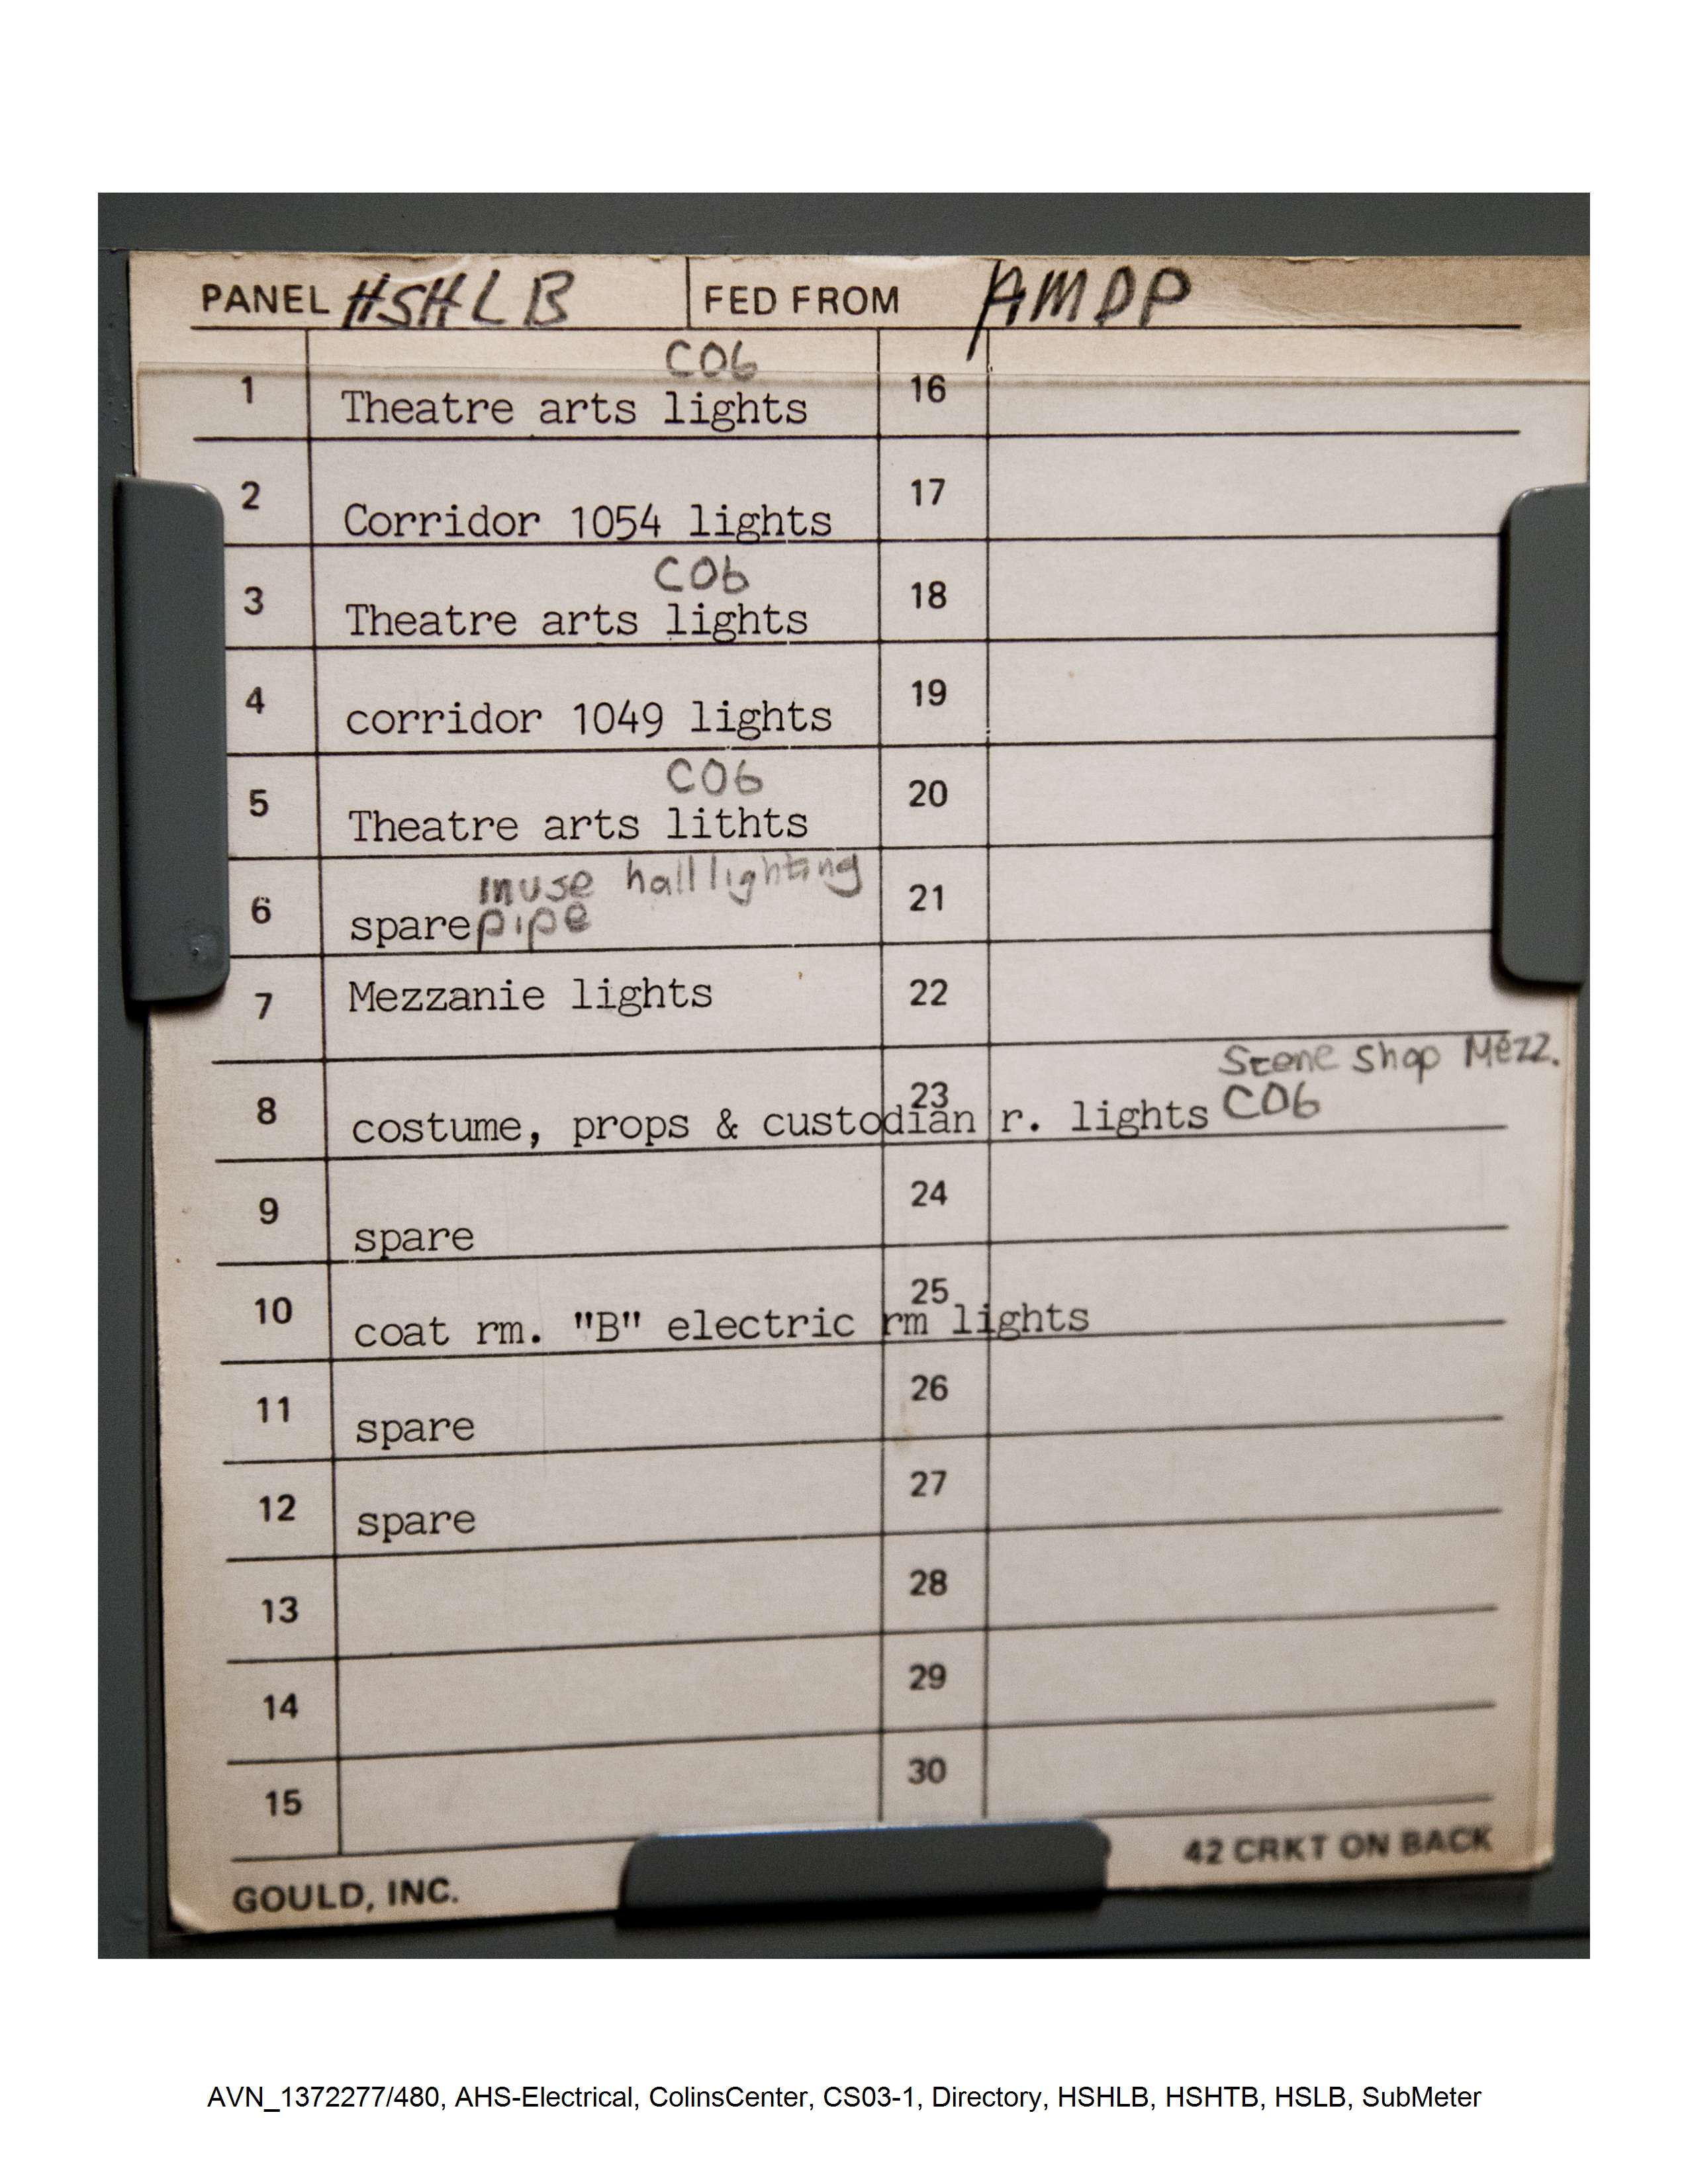 PANEL HSHLB FED FROM AMDP
C06
1 Theatre arts lights 16
2 Corridor 1054 lights 17
C06
3 Theatre arts lights 18
4 corridor 1049 lights 19
C06
5 Theatre arts lithts 20
inuse hall lighting
6 spare pipe 21
7 Mezzanie lights 22
Scene Shop Mezz.
8 costume, props & custodian r. lights C06 23
9 spare 24
10 coat rm. "B" electric rm lights 25
11 spare 26
12 spare 27
13 28
14 29
15 30
GOULD, INC. 42 CRKT ON BACK
AVN_1372277/480, AHS-Electrical, ColinsCenter, CS03-1, Directory, HSHLB, HSHTB, HSLB, SubMeter